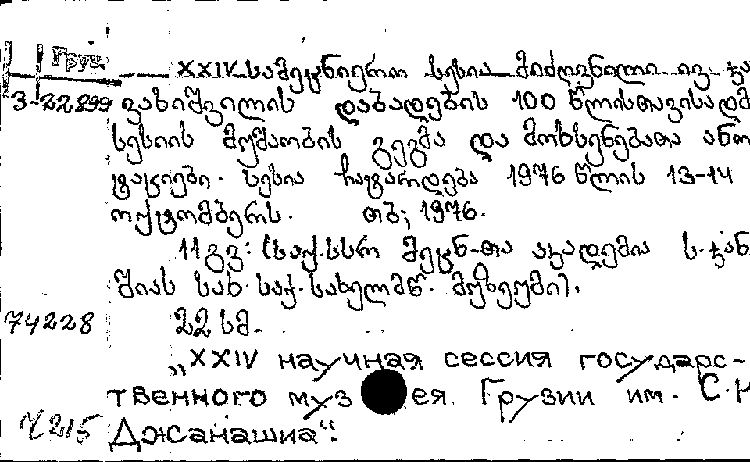 Груз.
XXIV სამეცნიერო სესია მიძღვნილი ივ. ჯა
3-22899 ვახიშვილის დაბადების 100 წლისთავისადმ
სესიის მუშაობის გეგმა და მოხსენებათა ანო
ტაციები. სესია ჩატარდება 1976 წლის 13-14
ოქტომბერს. თბ; 1976.
11 გვ: (საქ.სსრ მეცნ-თა აკადემია ს. ჯან
შიას სახ. საქ. სახელმწ. მუზეუმი).
74228 22 სმ.
„XXIV научная сессия государс-
твенного музея Грузии им. С.Н
Ч215 Джанашиа“.